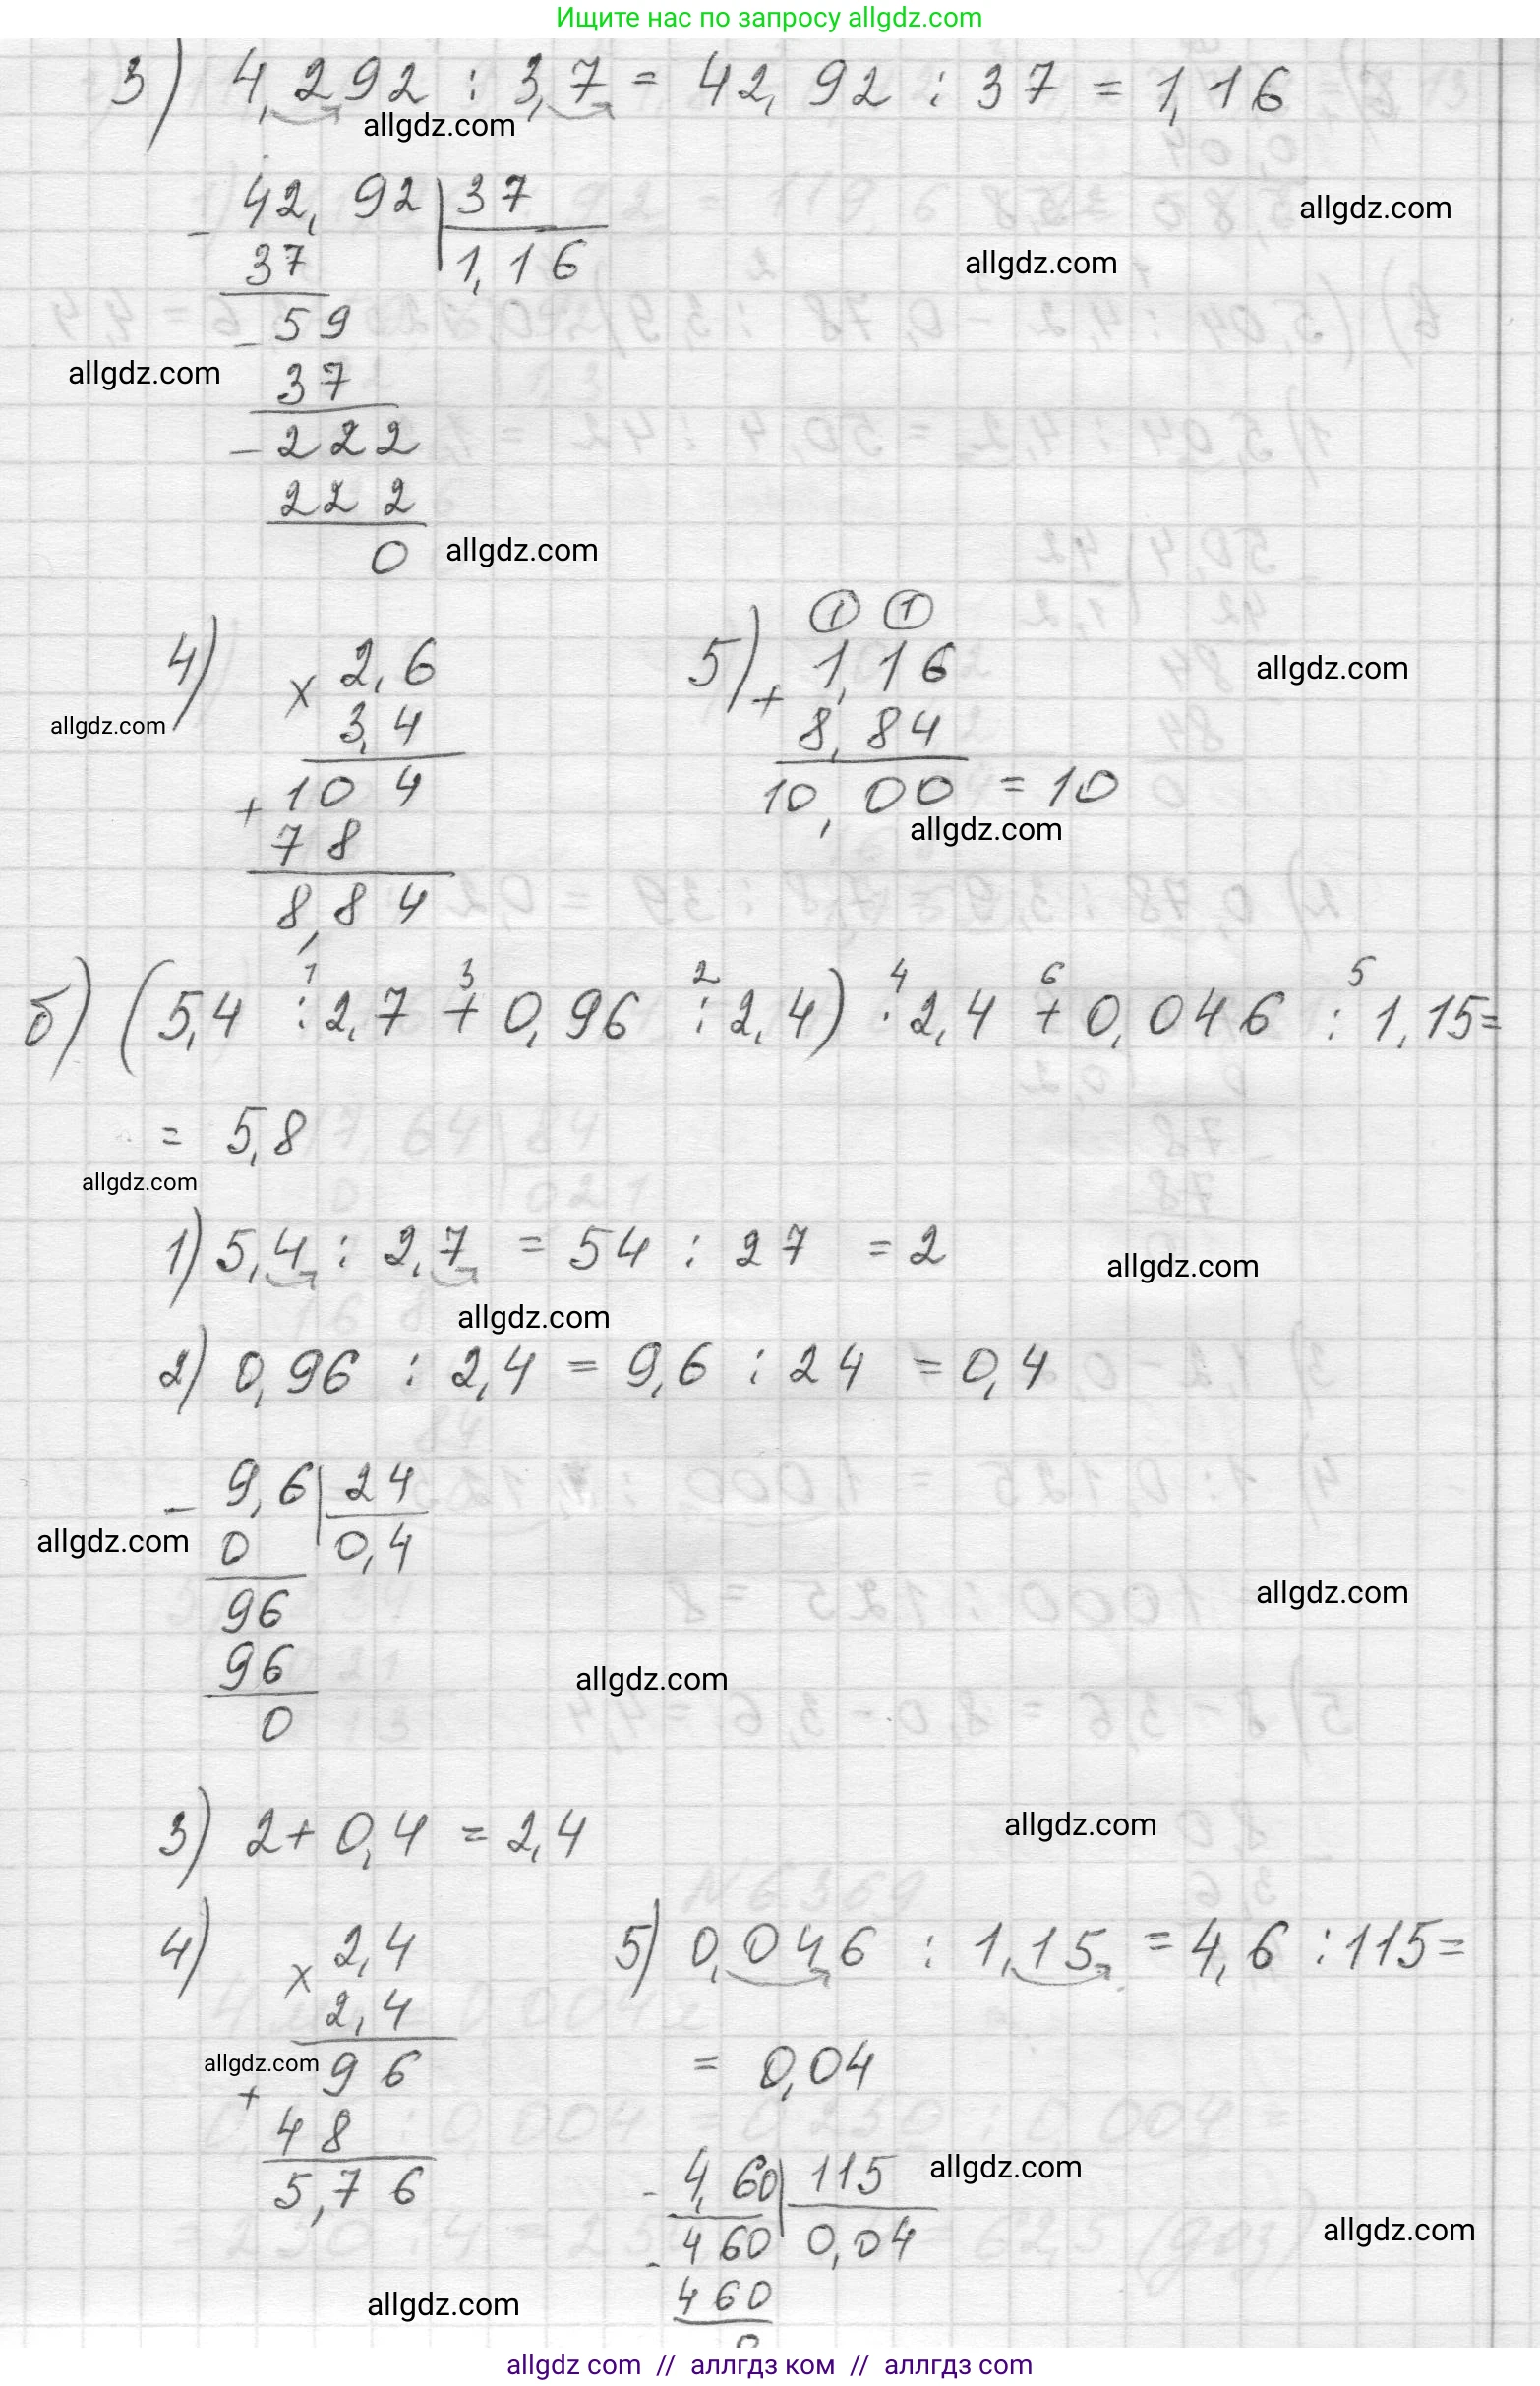 Ищите нас по запросу allgdz.com
3) 4,292 : 3,7 = 42,92 : 37 = 1,16
allgdz.com
- 42,92 | 37
allgdz.com
37 1,16
allgdz.com
- 59
allgdz.com
37
- 222
222
0
allgdz.com
4) × 2,6
3,4
+ 104
78
8,84
allgdz.com
5) 1 1
+ 1,16
8,84
10,00 = 10
allgdz.com
allgdz.com
1 3 2 4 6 5
б) (5,4 : 2,7 + 0,96 : 2,4) · 2,4 + 0,046 : 1,15 =
= 5,8
allgdz.com
1) 5,4 : 2,7 = 54 : 27 = 2
allgdz.com
allgdz.com
2) 0,96 : 2,4 = 9,6 : 24 = 0,4
- 9,6 | 24
0 0,4
allgdz.com
96
96
0
allgdz.com
allgdz.com
3) 2 + 0,4 = 2,4
allgdz.com
4) × 2,4
2,4
allgdz.com
+ 96
48
5,76
5) 0,046 : 1,15 = 4,6 : 115 =
= 0,04
- 4,60 | 115
allgdz.com
- 460 0,04
allgdz.com
460
0
allgdz.com
allgdz com // аллгдз ком // аллгдз com